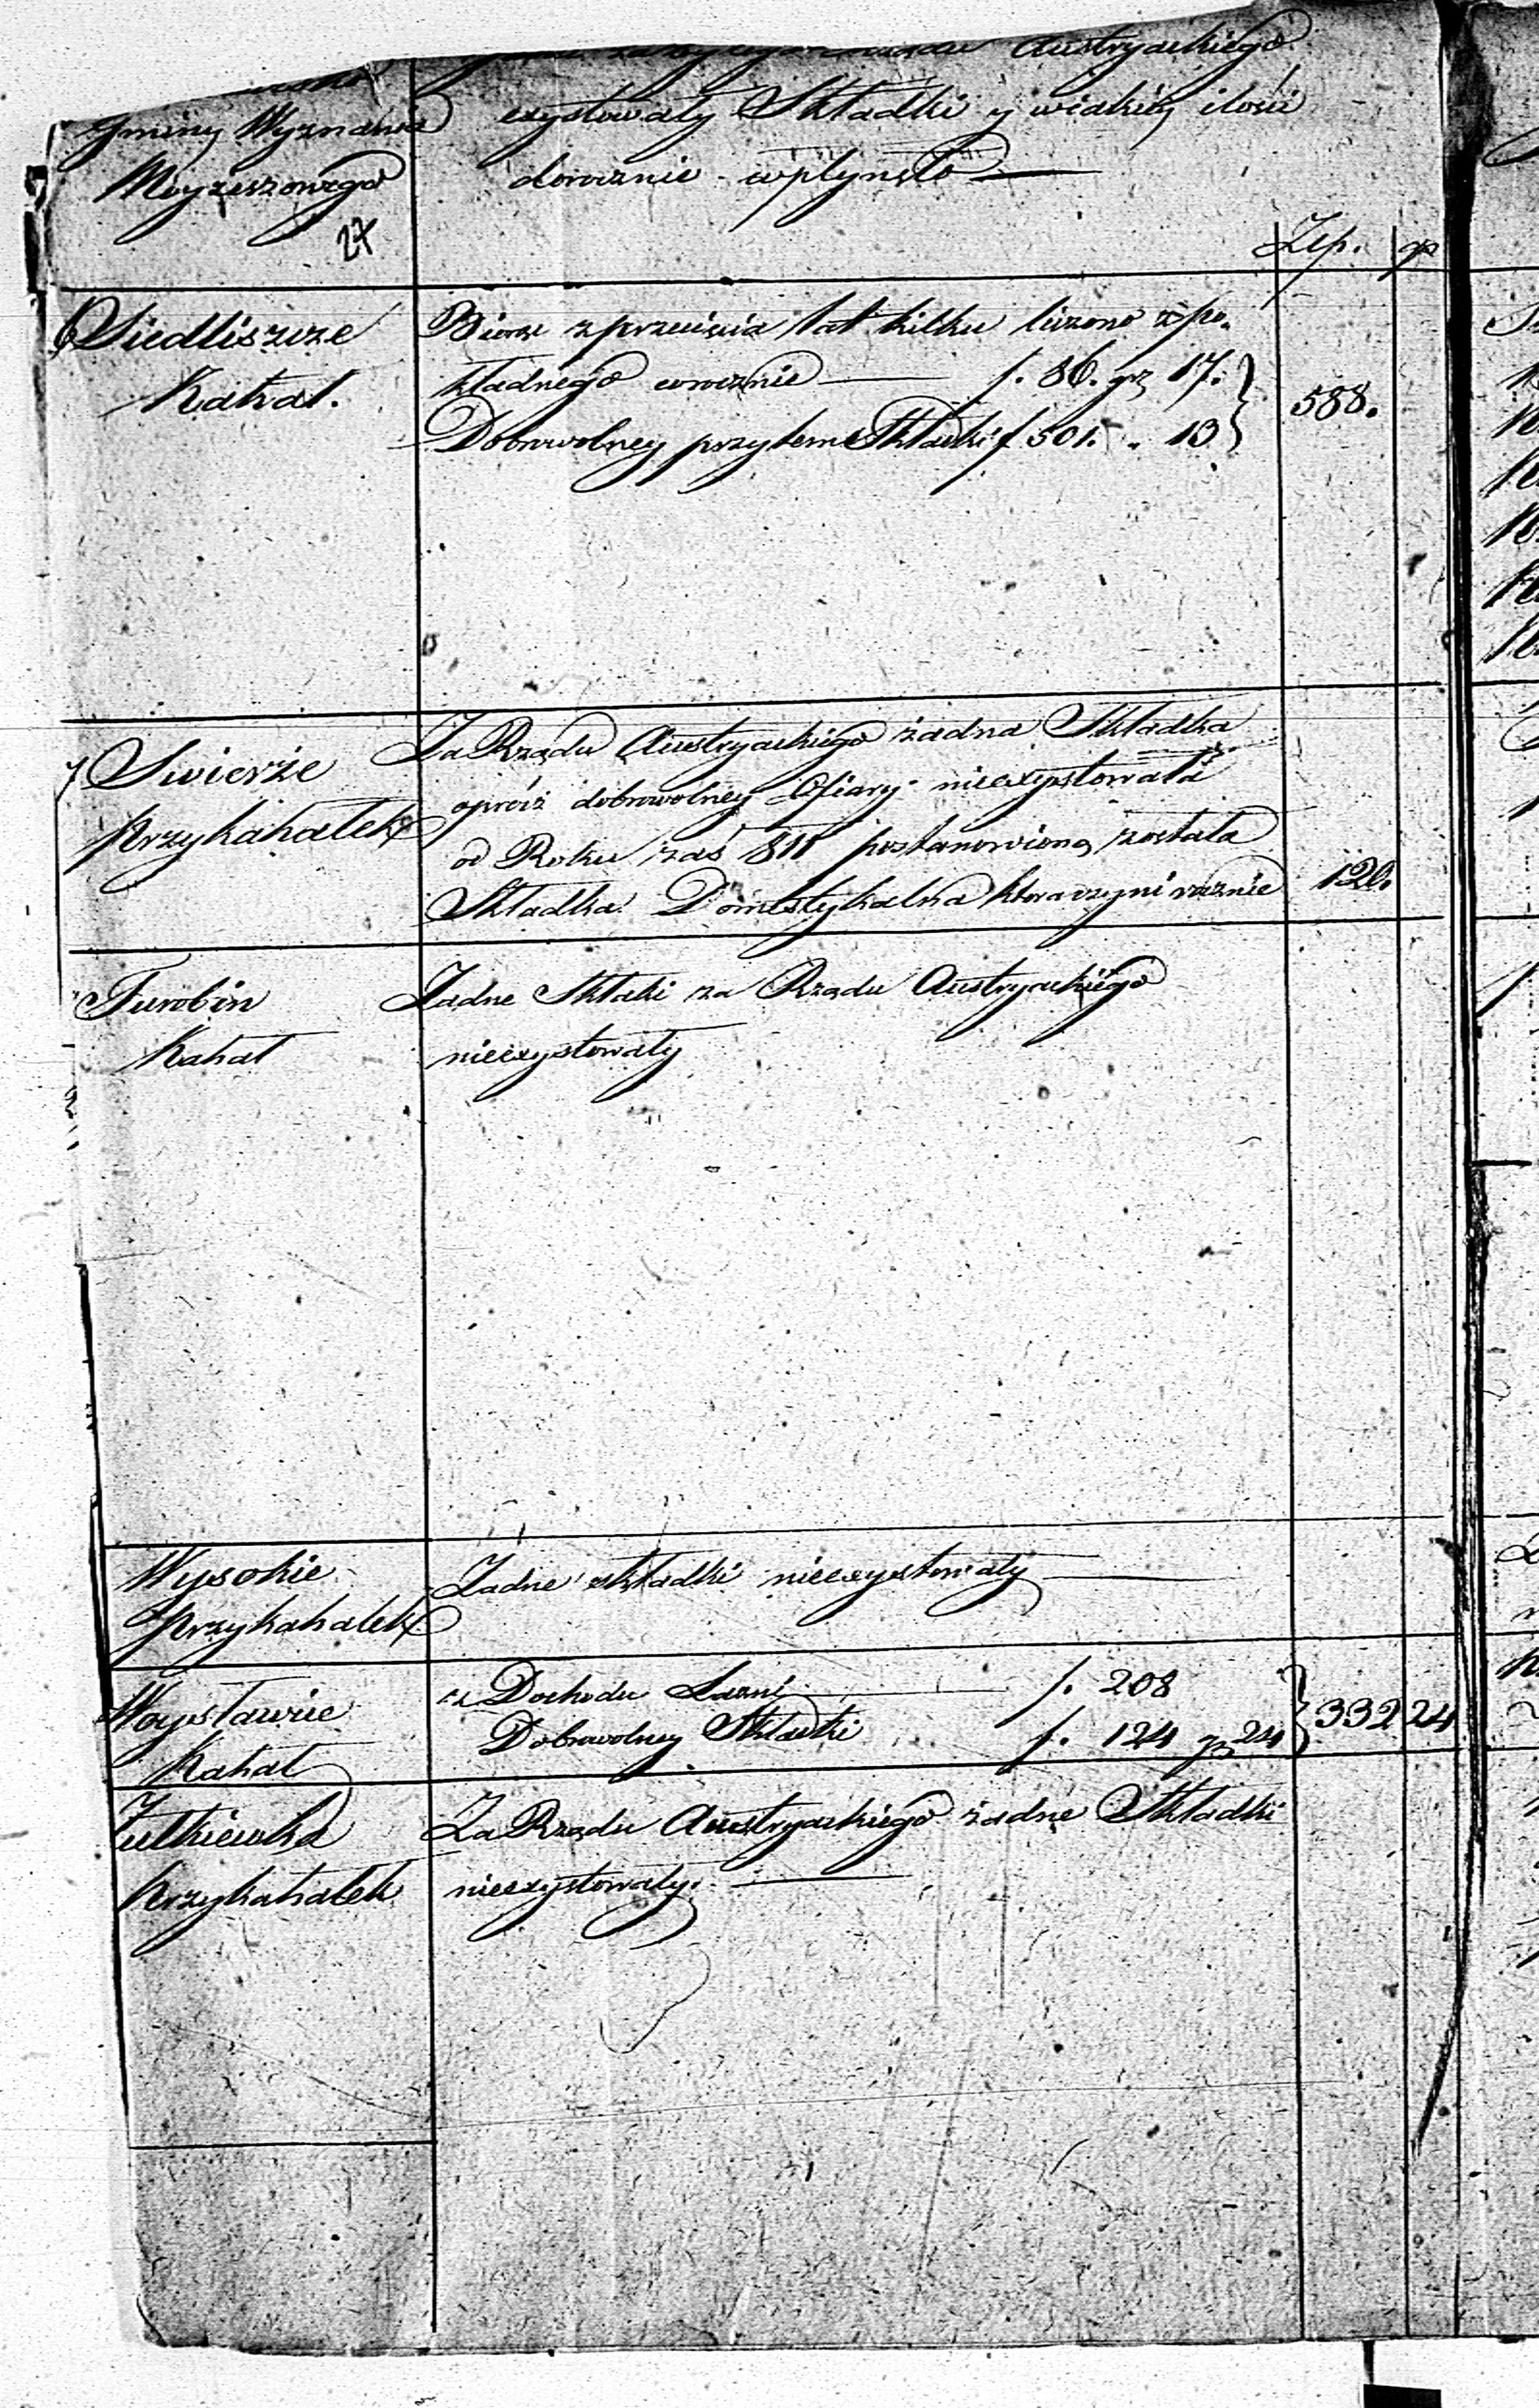 Austryackiego
Gminy Wyznania
Moyżeszowego
27
exystowały Składki y wiakiey ilości
dorocznie wpłynęło
Złp. gr
Siedliszcze
Kahał.
Biorąc z przecięcia lat kilku liczono z po-
kładnego corocznie f. 86. gr 17.
Dobrowolney przytem Składki f 501. " 13
588.
Swierże
przykahałek
Za Rządu Austryackiego żadna Składka
oprócz dobrowolney Ofiary nieexystowała
od Roku zaś 811 postanowioną została
Składka Domestykalna która czyni rocznie
120.
Turobin
Kahał
Żadne Składki za Rządu Austryackiego
nieexystowały
Wysokie
przykahałek
Żadne składki nieexystowały
Woysławice
Kahał
z Dochodu Łazni f. 208
Dobrowolney Składki f. 124 gr 24
332 24
Żułkiewka
Przykahałek
Za Rządu Austryackiego żadne Składki
nieexystowały.